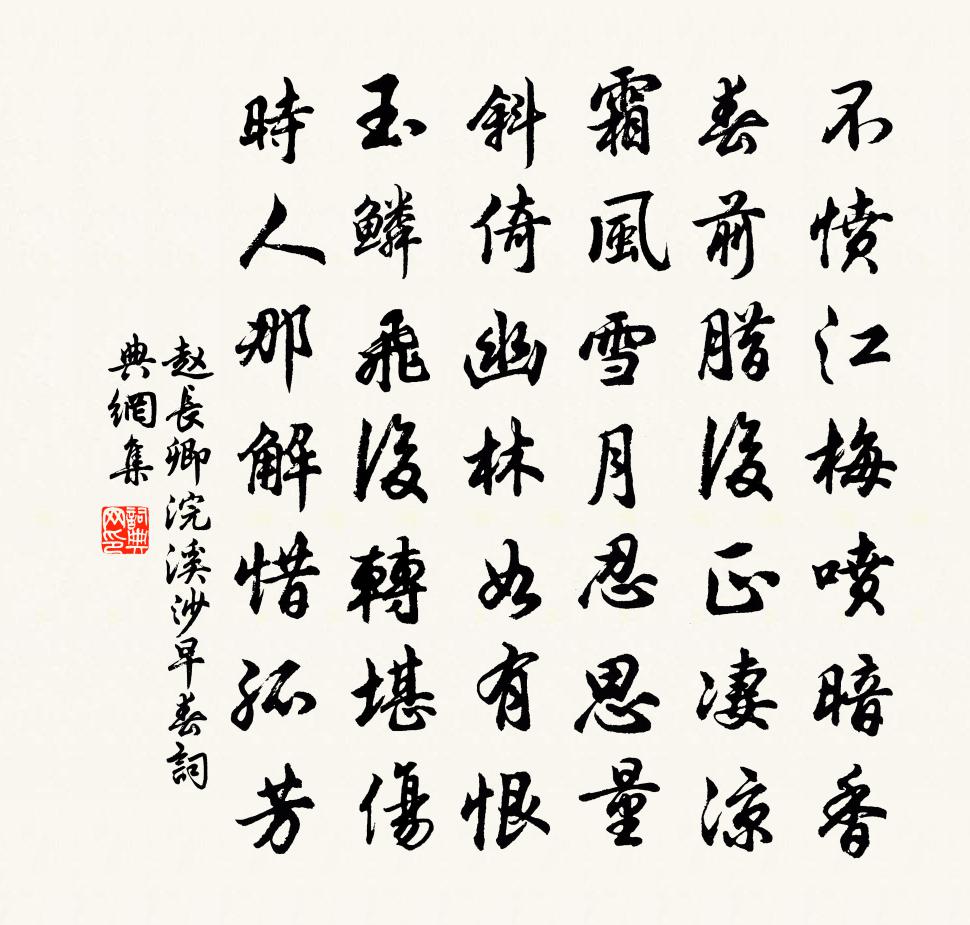 不憤江梅噴暗香
春前腊後正凄凉
霜風雪月忍思量
斜倚幽林如有恨
玉鳞飛後轉堪傷
時人那解惜孤芳
赵長卿浣溪沙早春詞
典網集
詞典网印